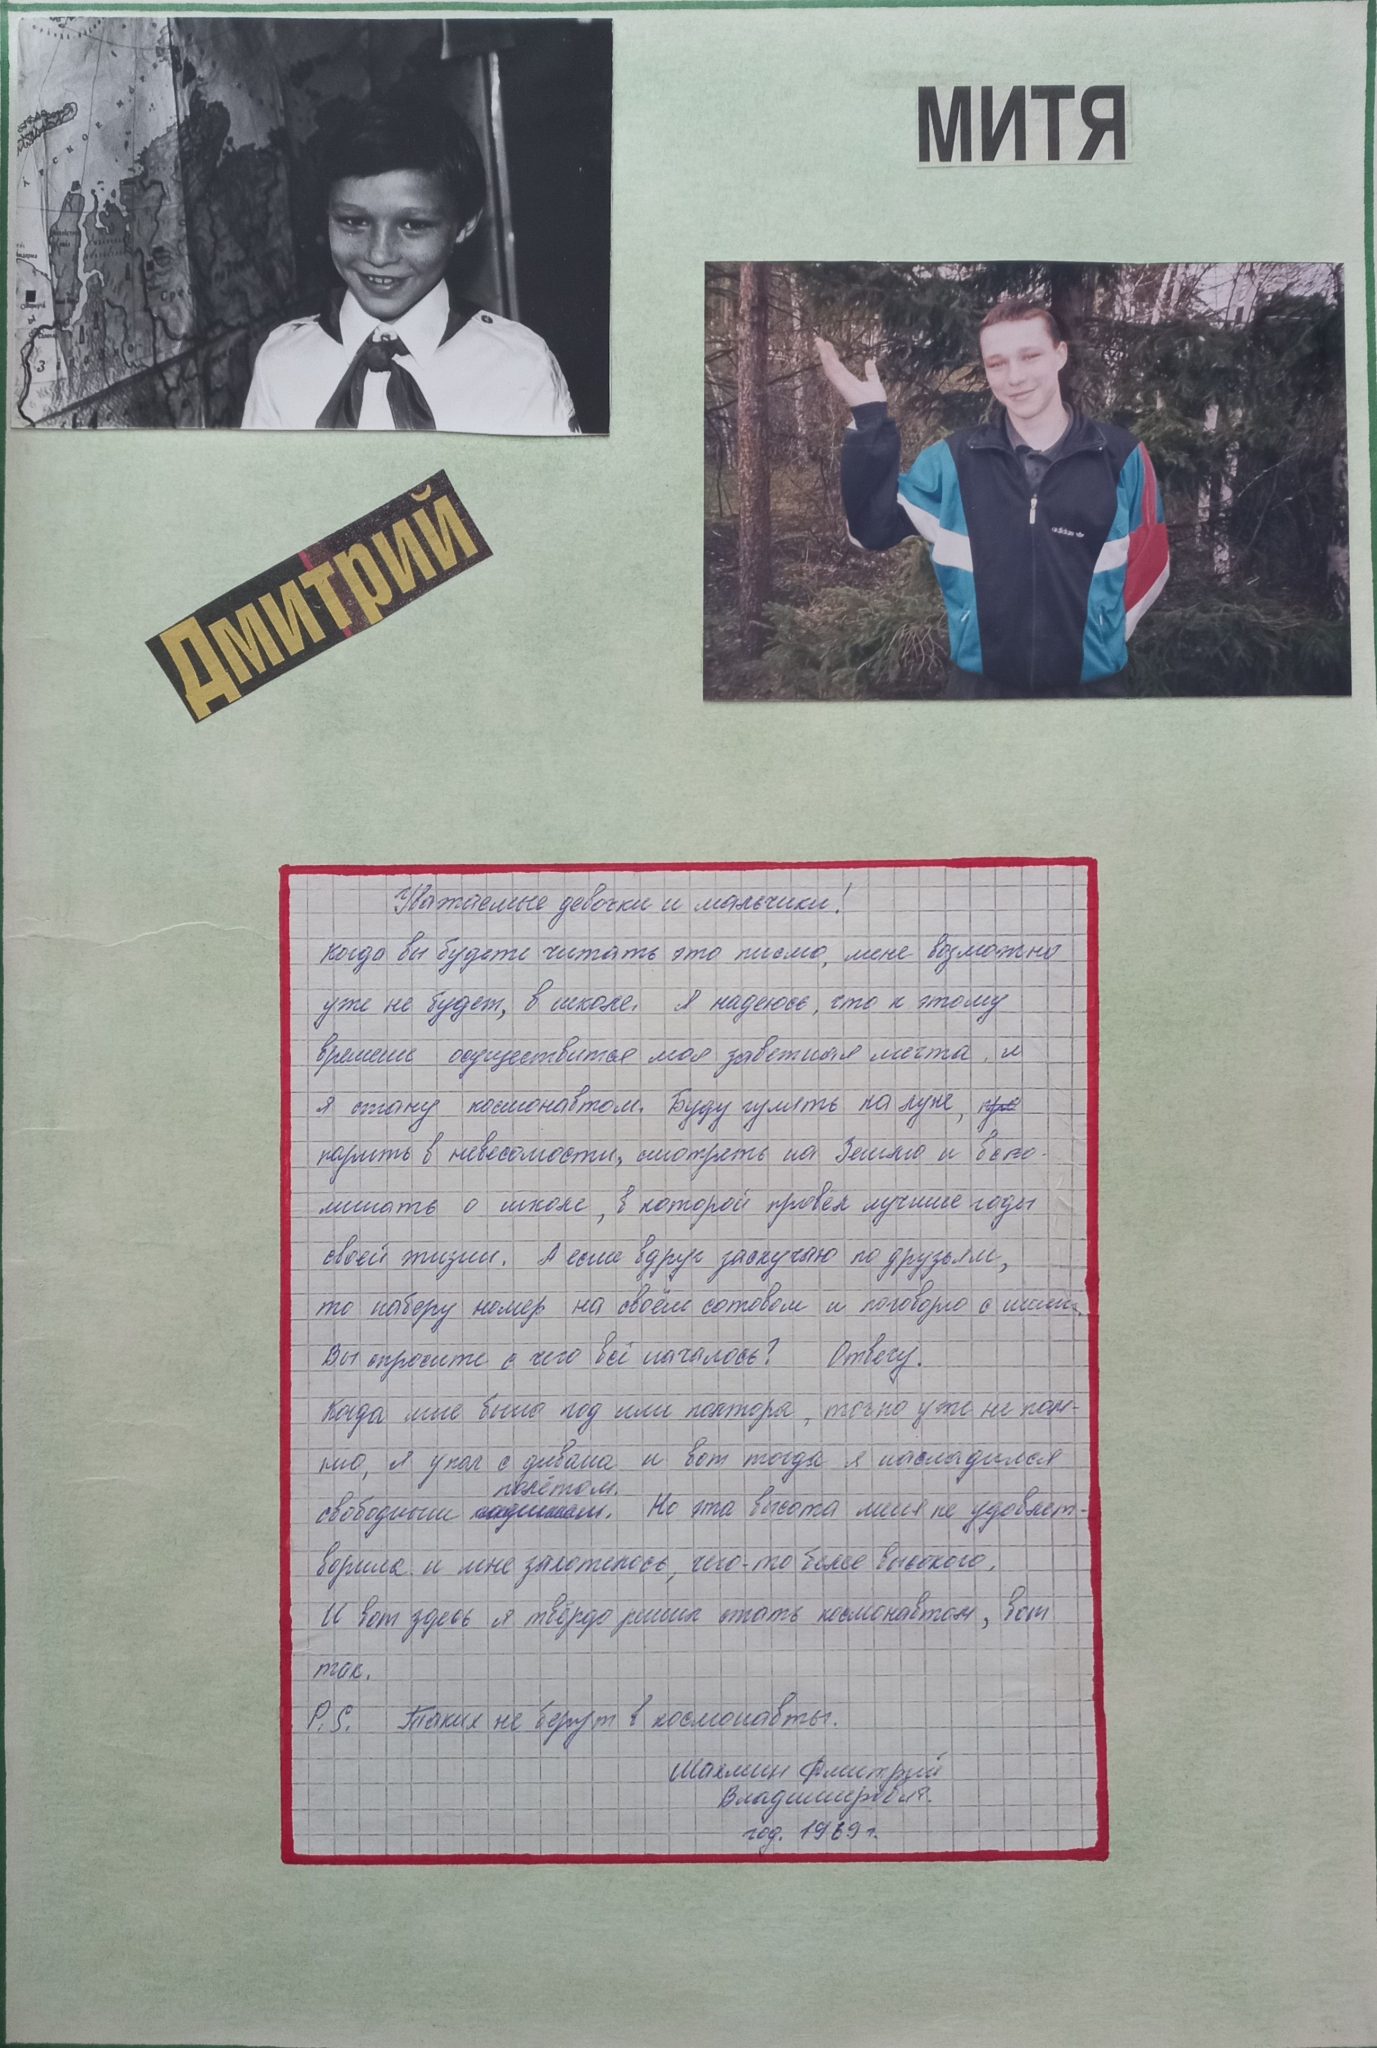 МИТЯ
adidas
Дмитрий
Уважаемые девочки и мальчики!
Когда вы будете читать это писмо, меня возможно
уже не будет, в школе. Я надеюсь, что к этому
времени осуществится моя заветная мечта, и
я стану космонавтом. Буду гулять на луне,
парить в невесомости, смотреть на Землю и вспо-
минать о школе, в которой провёл лучшие годы
своей жизни. А если вдруг заскучаю по друзьям,
то наберу номер на своём сотовом и поговорю с ними.
Вы спросите с чего всё началось? Отвечу.
Когда мне было год или полтора, точно уже не пом-
ню, я упал с дивана и вот тогда я насладился
полётом.
свободным. Но эта высота меня не удовлет-
ворила и мне захотелось, чего-то более высокого.
И вот здесь я твёрдо решил стать космонавтом, вот
так.
P.S. Таких не берут в космонавты.
Дмитрий
Владимирович.
год. 1989 г.